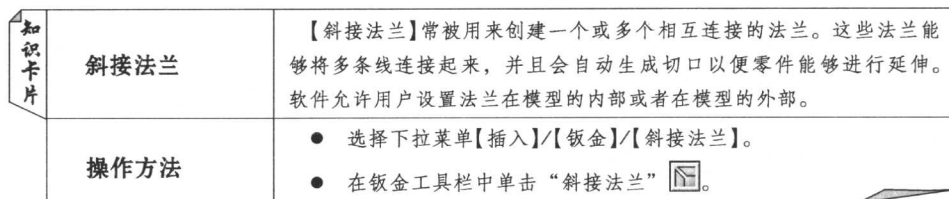 知识卡片
斜接法兰
【斜接法兰】常被用来创建一个或多个相互连接的法兰。这些法兰能
够将多条线连接起来，并且会自动生成切口以便零件能够进行延伸。
软件允许用户设置法兰在模型的内部或者在模型的外部。
操作方法
● 选择下拉菜单【插入】/【钣金】/【斜接法兰】。
● 在钣金工具栏中单击“斜接法兰” 。